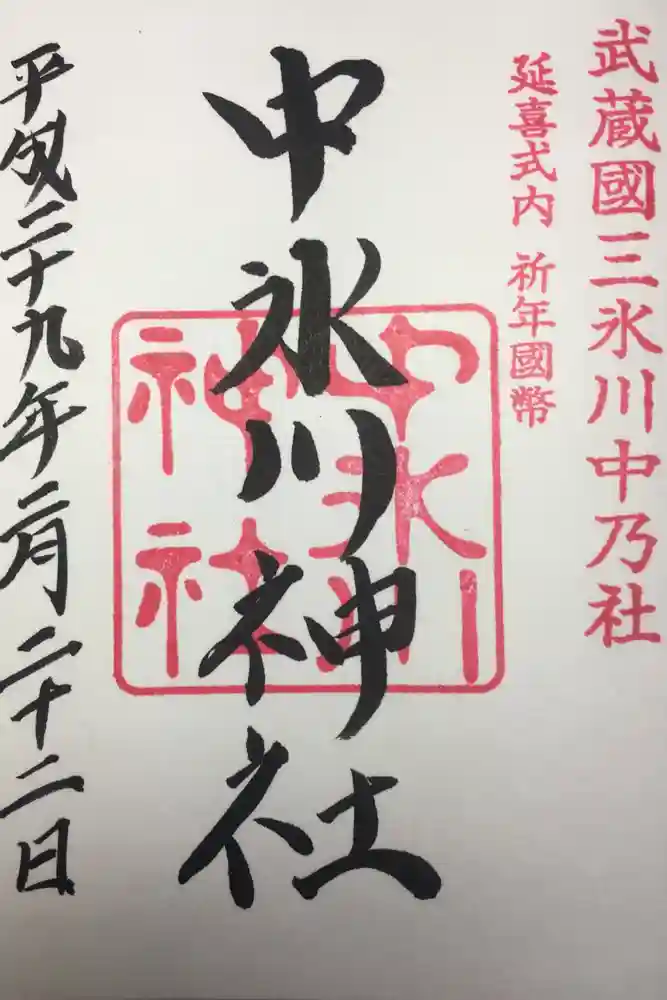 武蔵國三氷川中乃社
延喜式内 祈年國幣
中氷川神社
中氷川
神社
平成二十九年二月二十二日